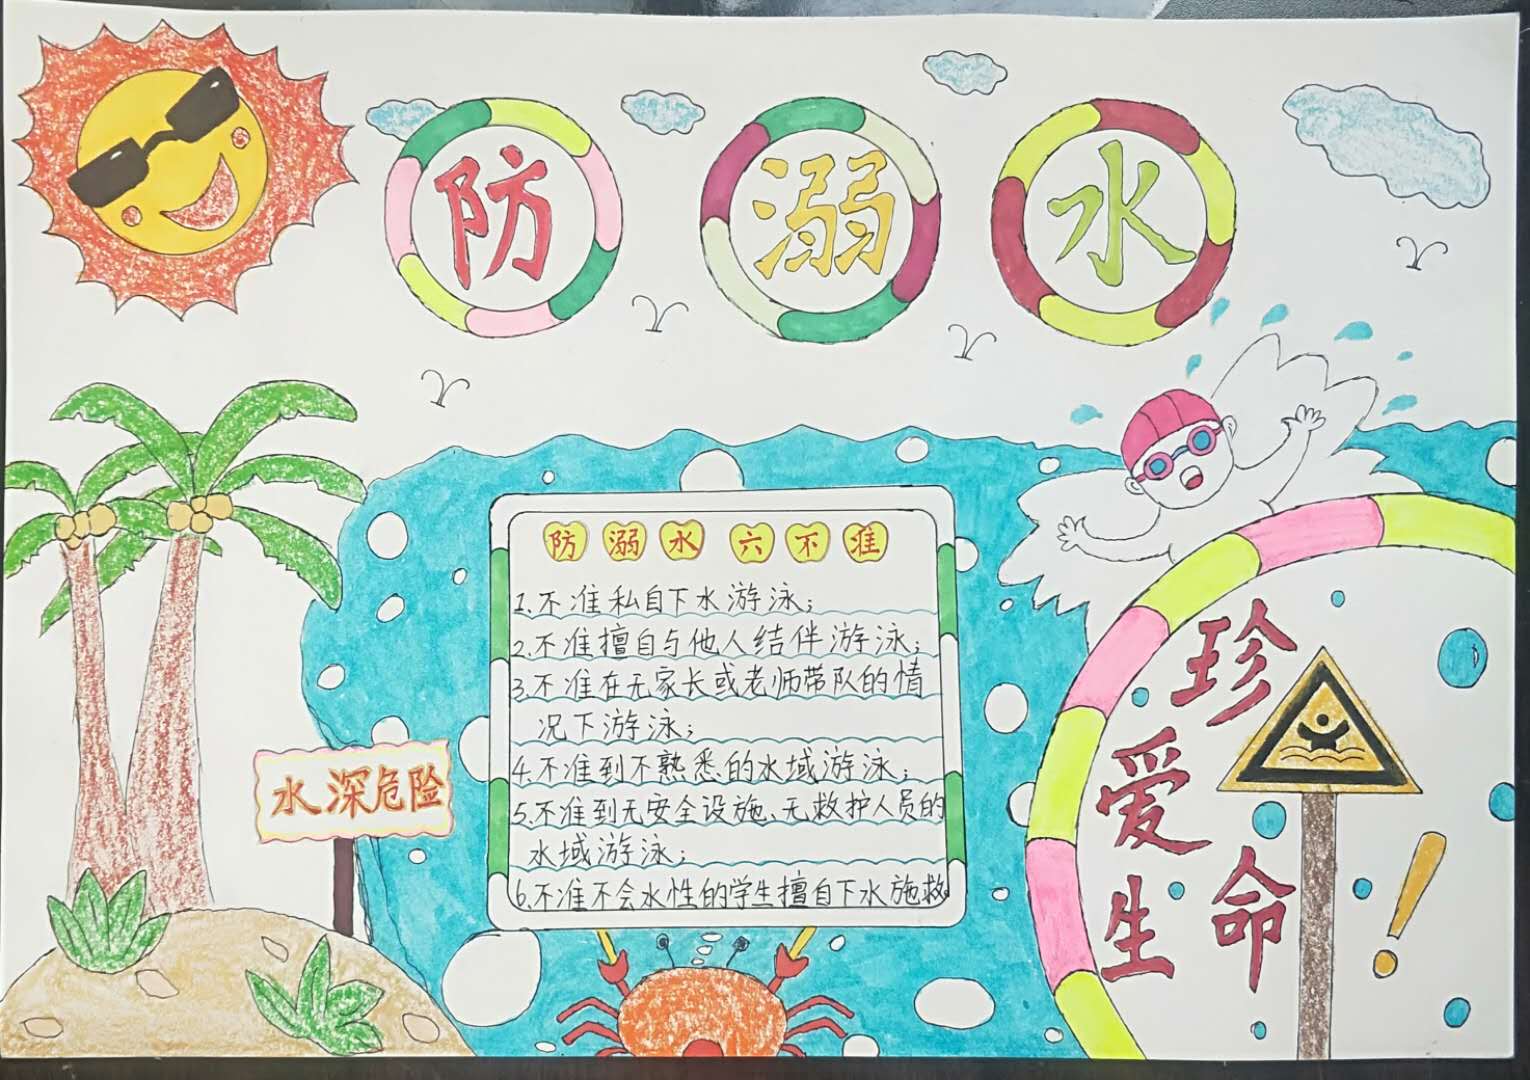 防溺水
防溺水六不准
1.不准私自下水游泳;
2.不准擅自与他人结伴游泳;
3.不准在无家长或老师带队的情
况下游泳;
4.不准到不熟悉的水域游泳;
5.不准到无安全设施、无救护人员的
水域游泳;
6.不准不会水性的学生擅自下水施救
水深危险
珍
爱
生命!